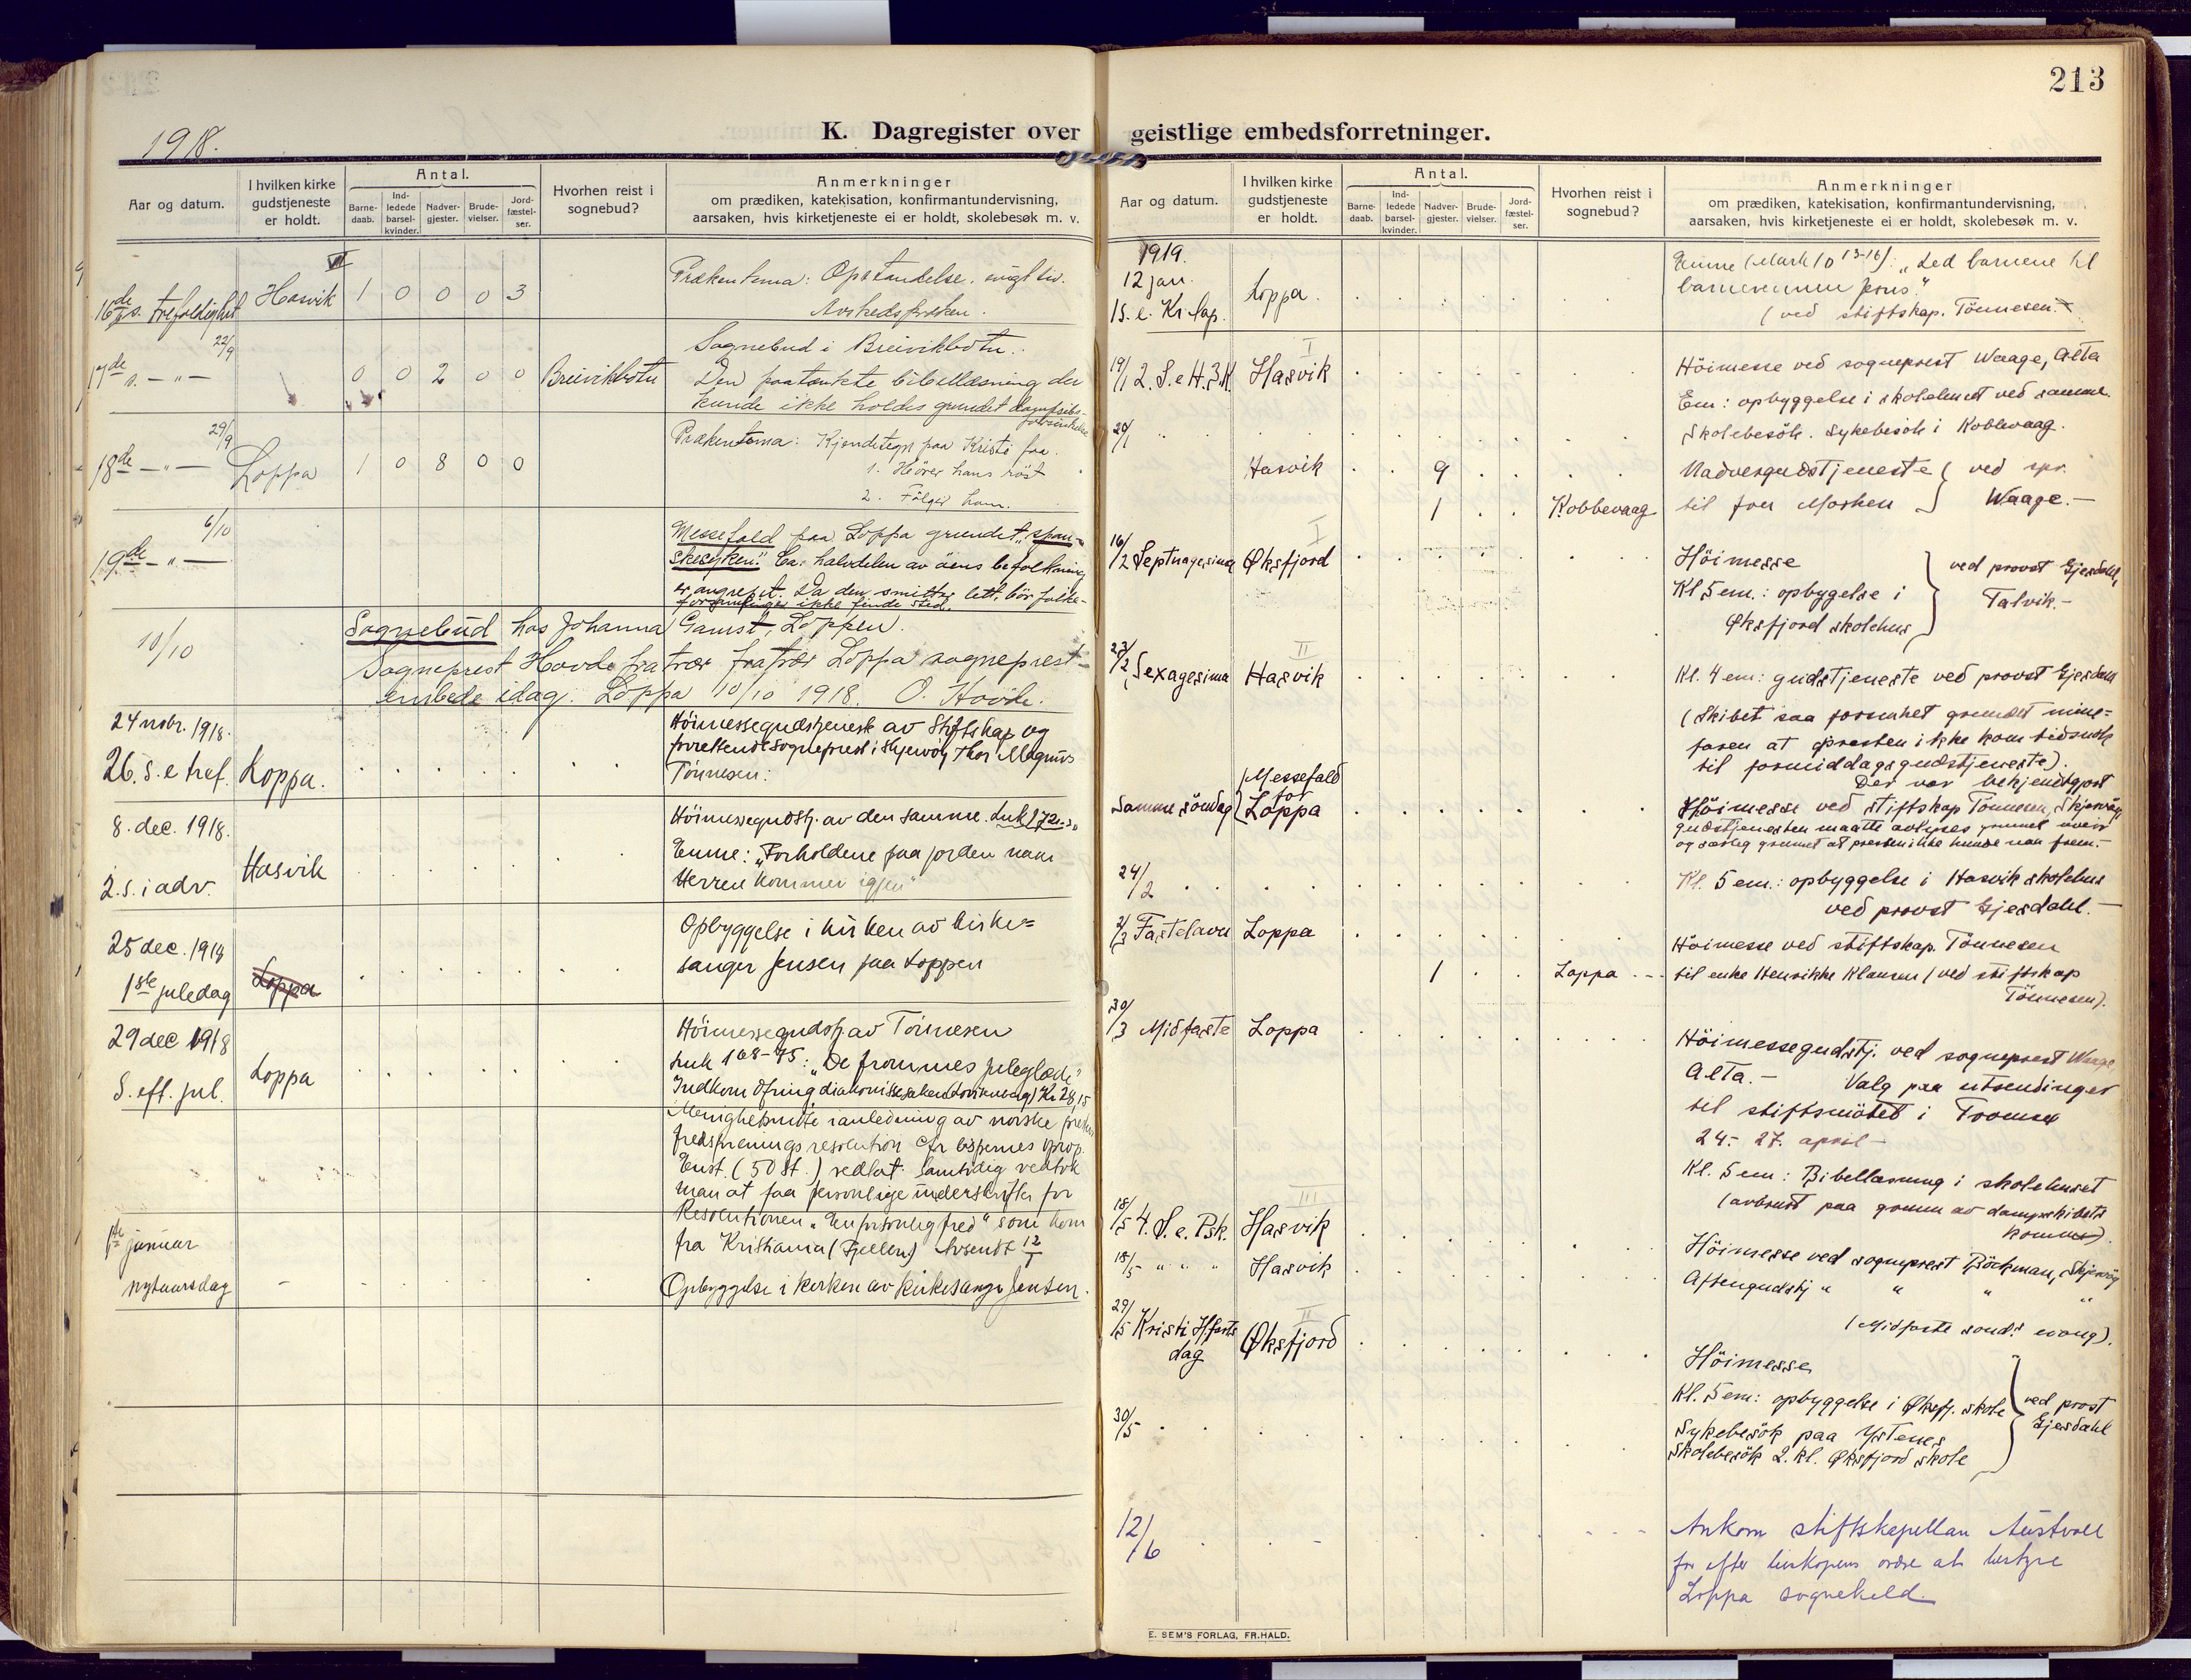 213
1918.
K. Dagregister over geistlige embedsforretninger.
Aar og datum.
I hvilken kirke gudstjeneste er holdt.
Antal.
Barne-daab.
Ind-ledede barsel-kvinder.
Nadver-gjester.
Brude-vielser.
Jord-fæstel-ser.
Hvorhen reist i sognebud?
Anmerkninger
om prædiken, katekisation, konfirmantundervisning,
aarsaken, hvis kirketjeneste ei er holdt, skolebesøk m. v.
VII
16de s. trefoldighet Hasvik 1 0 0 0 3 Prækentema: Opstandelse. evigt liv.
Avskedspræken.
22/9
17de s. — „ — 0 0 2 0 0 Breivikbotn Sognebud i Breivikbotn.
Den paatænkte bibellæsning der
kunde ikke holdes grundet dampskibs-
forsinkelse
29/9
18de — „ — Loppa 1 0 8 0 0 Prækentema: Kjendetegn paa Kristi faa.
1. Hörer hans röst
2. Fölger ham.
6/10
19de — „ — Messefald paa Loppa grundet „span-
skesyken". Ca. halvdelen av öens befolkning
er angrepet. Da den smitter lett, bör folke-
forsamlinger ikke finde sted.
10/10 Sognebud hos Johanna Gamst, Loppen.
Sogneprest Hovde fratrær fratrær Loppa sogneprest-
embede idag. Loppa 10/10 1918. O. Hovde.
24 novbr. 1918.
26. s. e tref. Loppa. Höimessegudstjeneste av Stiftskap og
forrettende sogneprest i Skjervöy Thor Magnus
Tönnesen:
8. dec. 1918.
2. s. i adv. Hasvik Höimessegudstj. av den samme. Luk 17
Emne: „Forholdene paa jorden naar
Herren kommer igjen"
25 dec. 1918
1ste juledag Loppa Opbyggelse i kirken av kirke=
sanger Jensen paa Loppen
29 dec 1918
S. eft. jul. Loppa Höimessegudstj. av Tönnesen
Luk 1 68-75: „De frommes juleglæde"
Indkom Ofring diakonissesaken Kr 28,15
Menighetsmöte i anledning av norske
fredsforenings resolution cfr bispernes oprop
Enst. (50 st.) vedtat. Samtidig vedtok
man at faa personlige underskrifter for
Resolutionen „En forsonlig fred" som kom
fra Kristiania (Fjellen) Avsendt 12/1
1ste januar
nytaarsdag Opbyggelse i kirken av kirkesanger Jensen.
Aar og datum.
I hvilken kirke gudstjeneste er holdt.
Antal.
Barne-daab.
Ind-ledede barsel-kvinder.
Nadver-gjester.
Brude-vielser.
Jord-fæstel-ser.
Hvorhen reist i sognebud?
Anmerkninger
om prædiken, katekisation, konfirmantundervisning,
aarsaken, hvis kirketjeneste ei er holdt, skolebesøk m. v.
1919.
12 jan.
1 s. e. Kr. aap. Loppa. Emne (Mark 10 13-16): „Led barnene til
barnevennen Jesus."
(ved stiftskap. Tönnesen.
I
19/1 2. S. e H. 3 K. Hasvik Höimesse ved sogneprest Waage, Alta
Em: opbyggelse i skolehuset ved samme.
20/1 „ Skolebesök. Sykebesök i Kobbevaag.
Hasvik 9 Nadvergudstjeneste } ved spr.
1 Kobbevaag til fru Morken } Waage.—
I
16/2 Septuagesima Øksfjord Höimesse
Kl 5 em.: opbygelse i
Øksfjord skolehus } ved provst Gjesdahl,
Talvik.—
II
23/2 Sexagesima Hasvik Kl. 4 em: gudstjeneste ved provst Gjesdahl
(Skibet saa forsinket grundet mine=
faren at presten ikke kom tidsnok
til formiddagsgudstjeneste).
Samme söndag {Messefald for Loppa Der var bekjendtgjort
Höimesse ved stiftskap Tönnesen, Skjervöy
gudstjenesten maatte avlyses grunnet uveir
og særlig grunnet at presten ikke kunde naa frem.—
24/2 Kl. 5 em.: opbyggelse i Hasvik skolehus
ved provst Gjesdahl.—
2/3 Fastelavn Loppa Höimesse ved stiftskap. Tönnesen
1 Loppa til enke Henrikke Klausen (ved stiftskap
Tönnesen).
30/3 Midfaste Loppa Höimessegudstj. ved sogneprest Waage,
Alta.— Valg paa utsendinger
til stiftsmötet i Tromsø
24.- 27. april —
Kl. 5 em: Bibellæsning i skolehuset
(avbrudt paa grunn av dampskibets
komme).
III
18/5 4. S. e. Psk. Hasvik Höimesse ved sogneprest Böckman, Skjervöy
18/5 „ „ „ Hasvik Aftengudstj „ „ „ „
(Midfaste sönd.s evang).
II
29/5 Kristi Hfarts
dag Øksfjord Höimesse
Kl. 5 em: opbyggelse i Øksfj. skole
30/5 Sykebesök paa Ystenes
Skolebesök 2. kl. Øksfjord skole } ved prost
Gjesdahl
12/6 Ankom stiftskapellan Austvoll
for efter biskopens ordre at bestyre
Loppa sognekald.
E. SEM'S FORLAG, FR.HALD.